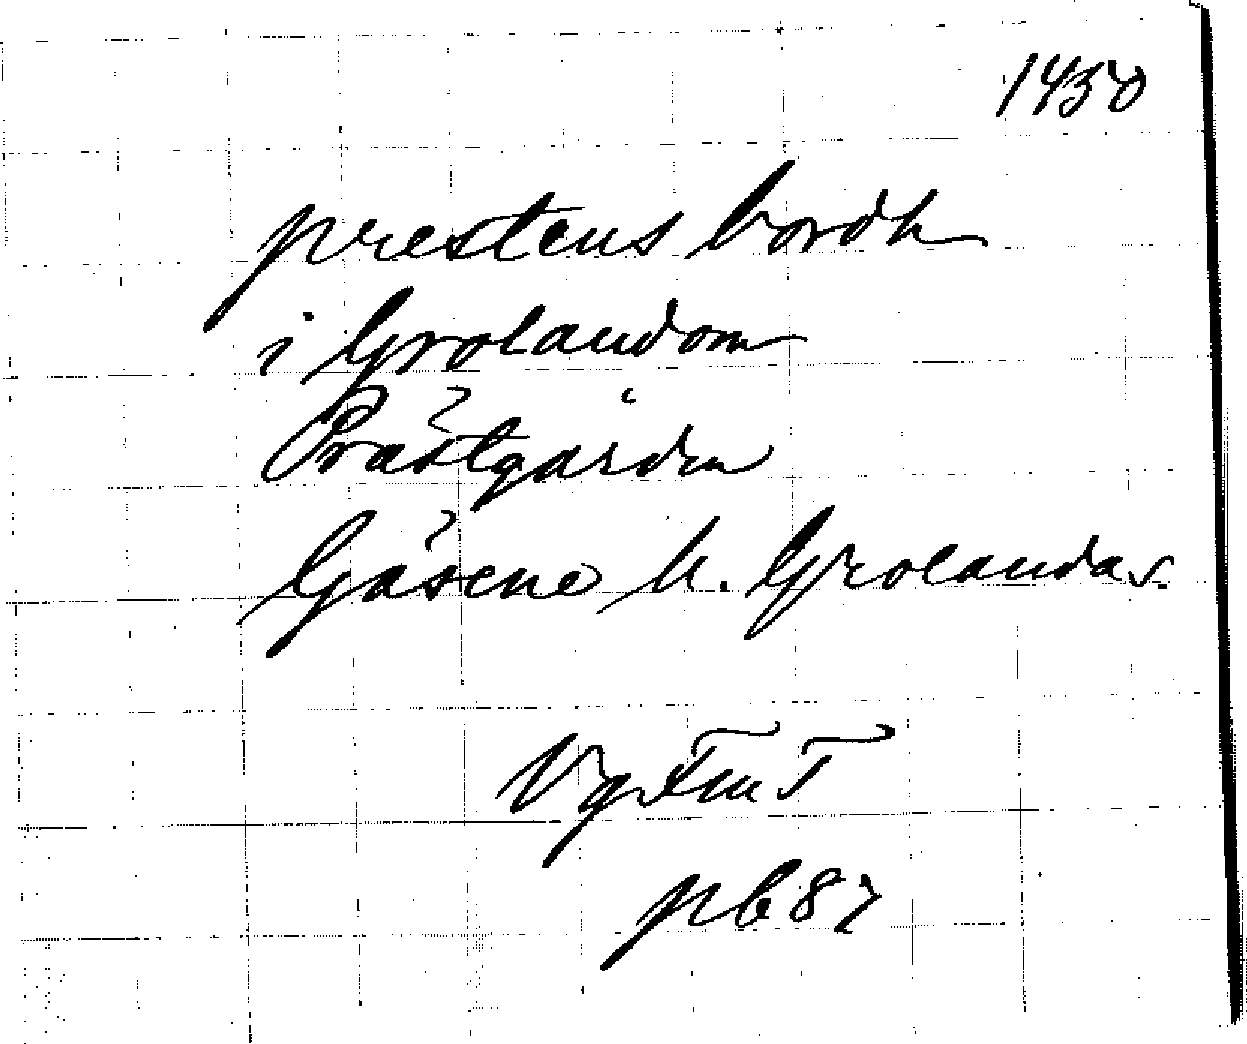 1450
prestens bordh
i Grolandom
Prästgården
Gäsene h. Grolanda s.
VgFmT
pb 87